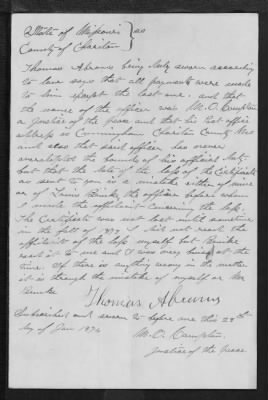 State of Missouri } as
County of Chariton
Thomas Abrams being duly sworn according
to law says that all payments were made
to him except the last one, and that
the name of the officer was M. O. Compton
a Justice of the peace and that his Post office
address is Cunningham Chariton County Mo
and also that said officer has never
the bounds of his official duty
but that the date of the loss of the Certificate
as sent to you is a mistake either of mine
or of Louis Benecke the officer before whom
I made the affidavit concerning the loss
The Certificate was not lost until sometime
in the fall of 1873 I did not read the
affidavit of the loss myself but Benecke
read it to me and I was very busy at the
time. If there is anything wrong in the matter
it is through the mistake of myself or Mr
Benecke
Thomas Abrams
Subscribed and sworn to before me this 28th
day of Jan 1874
M. O. Compton
Justice of the Peace